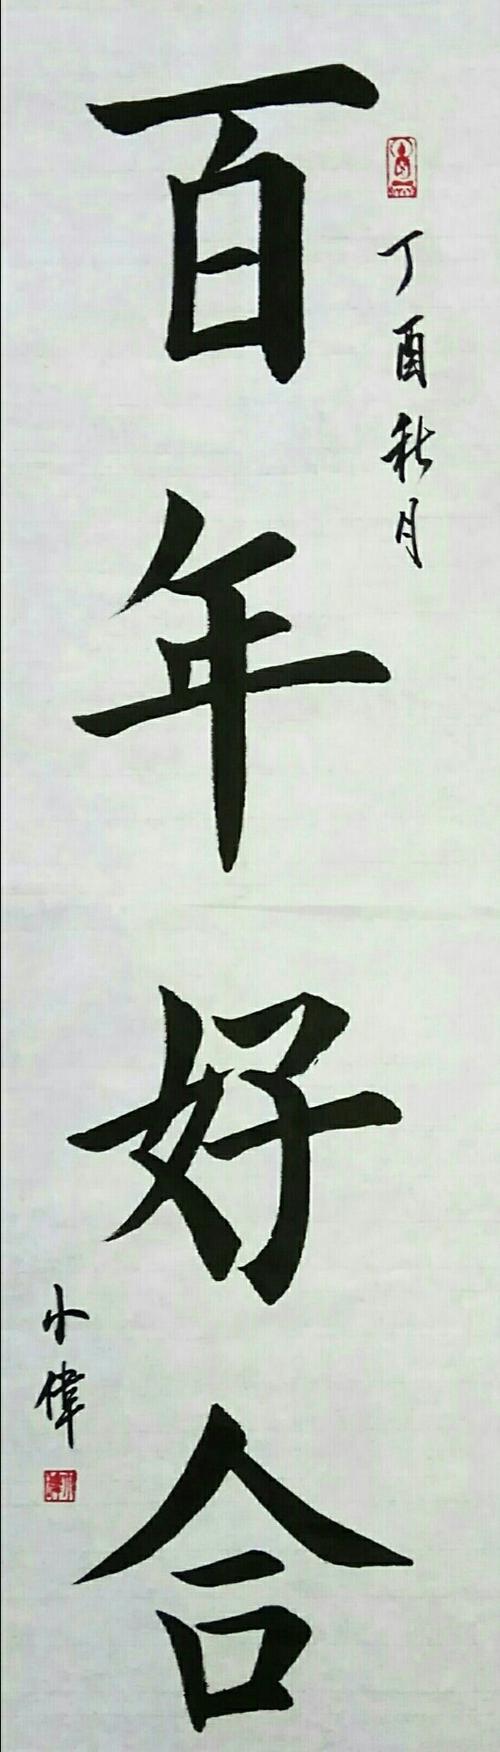 百年好合
丁酉秋月
小偉